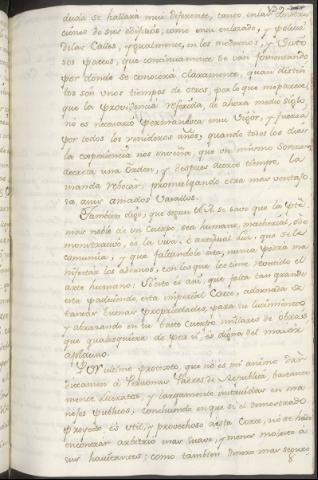 duda se hallará mui diferente, tanto en las
ciones de sus edificios, como mui enlozado, y
de las Calles, igualmente, en los modernos, y
sos paseos, que continuamente se van fomentando
por donde se conocerá claramente, quan distin
tos son unos tiempos de otros, por lo que me parece
que la providencia referida, de ahora medio siglo
no es necesario permanesca en su vigor, y fuerza
por todos los venideros años, quando todos los dias
la experiencia nos enseña, que un mismo Soverano
decreta una orden, y despues de corto tiempo, la
manda rebocar, promulgando otra mas ventajo
sa a sus amados Vasallos.
Tambien digo, que segun se save que la
mas noble de un Cuerpo, sea humano, material, ó de
monstrativo, es la viva, ó artificial luz, que se le
comunica, y que faltandole esta, nunca podria ma
nifestar los adornos, con los que le tiene
arte humano; Siendo es asi, que falta tan grande
esta padeciendo esta imperial Corte, adornada de
tantas buenas propriedades, para su lucimiento
y abrazando en su basto Cuerpo millares de obras
que qualesquiera de por si, es digna del maior
aplauso.
Por ultimo protexto, que no es mi animo dar
dictamen á Personas Padres de Republica, bastante
mente literatos, y largamente instruidos en ma
nejos publicos, concluiendo en que si el demostrado
proyecto es util, y provechoso a esta Corte, no se
encontrar arbitrio mas suave, y menos molesto á
sus havitantes; como tambien mas seguro